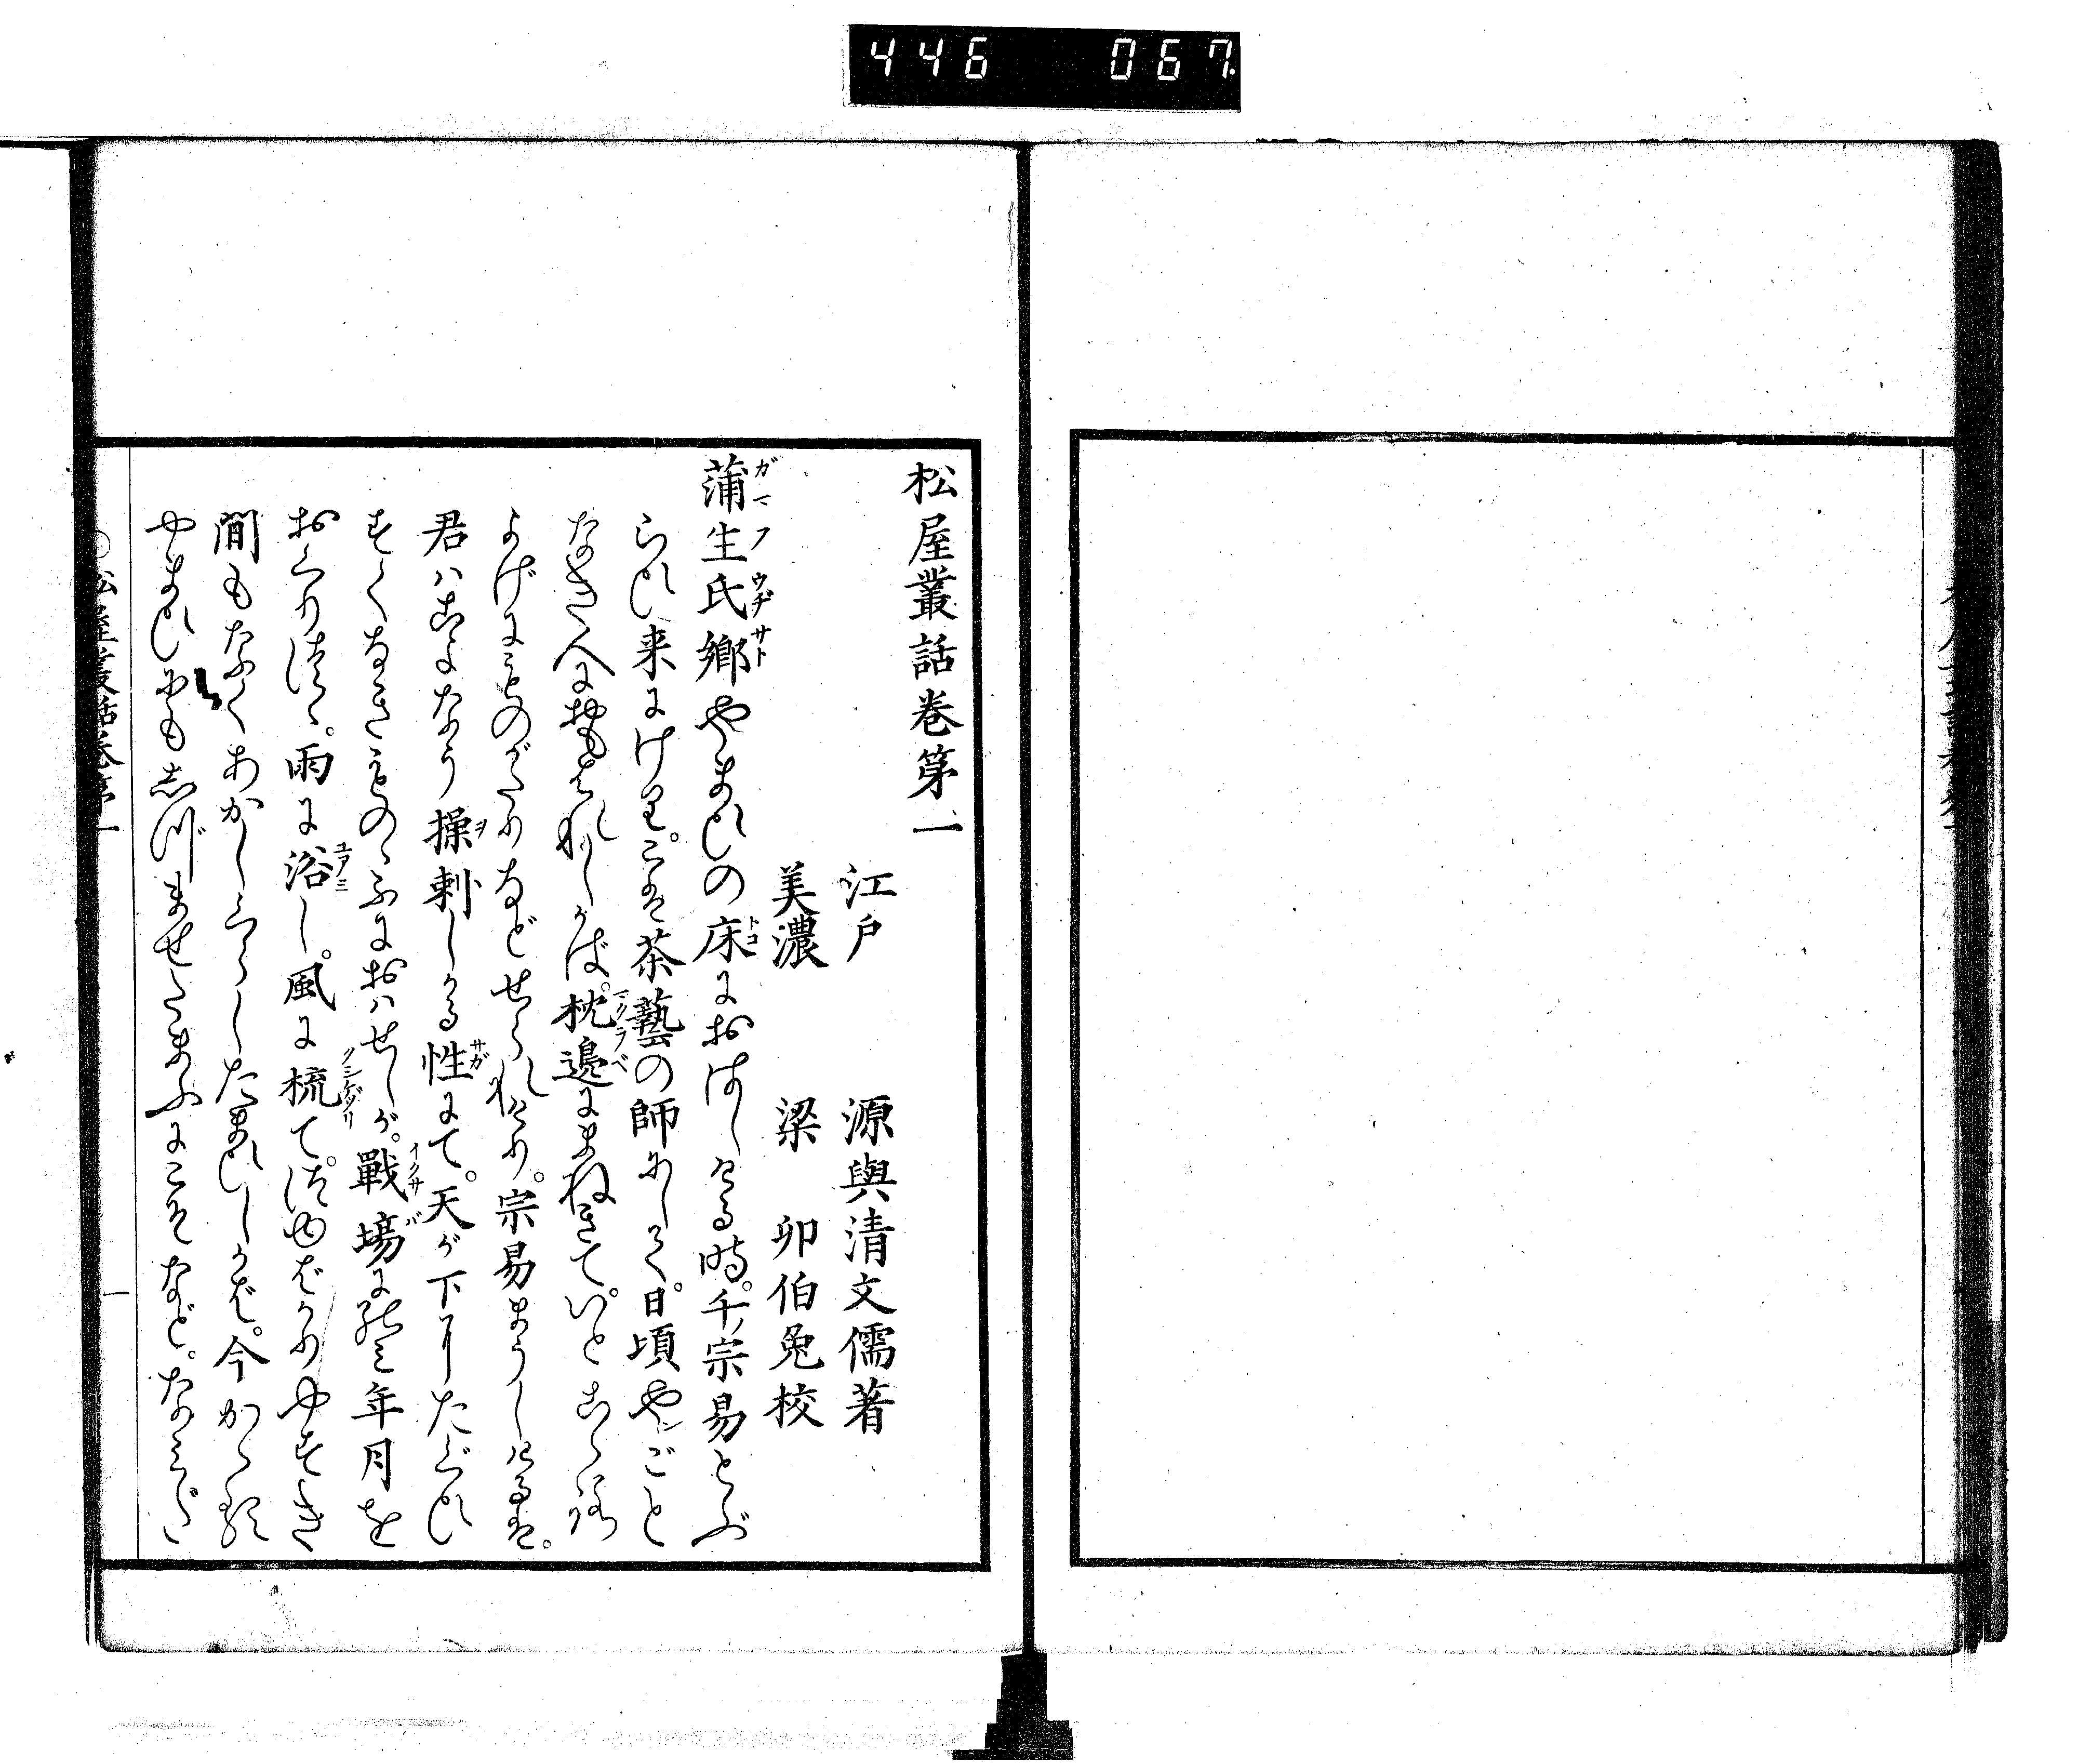 446 067.
松屋叢話卷第一
江戸 源與清文儒著
美濃 梁 卯伯兔校
蒲生氏郷やまひの床におはしける時。千ノ宗易とぶ
らひ来にけり。こは茶藝の師にして。日頃やンごと
なき人におもはれしかば。枕邊にまねきて。いとこゝろ
よげにものがたりなどせられけり。宗易まうしけるは。
君はさよなう操刺しかる性にて。天が下にたぐひ
すくなきものゝふにおはせしが。戰場に經こ年月を
おくりつゝ。雨に浴し。風に梳て。つゆばかりやすき
間もなくあかしくらしたまひしかば。今かゝる
やまひにもしづませたまふにこそなど。なみだ
松屋叢話卷第一
一